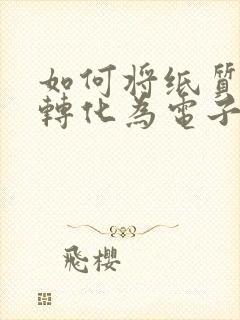 如何将纸質
轉化为電子
飛櫻